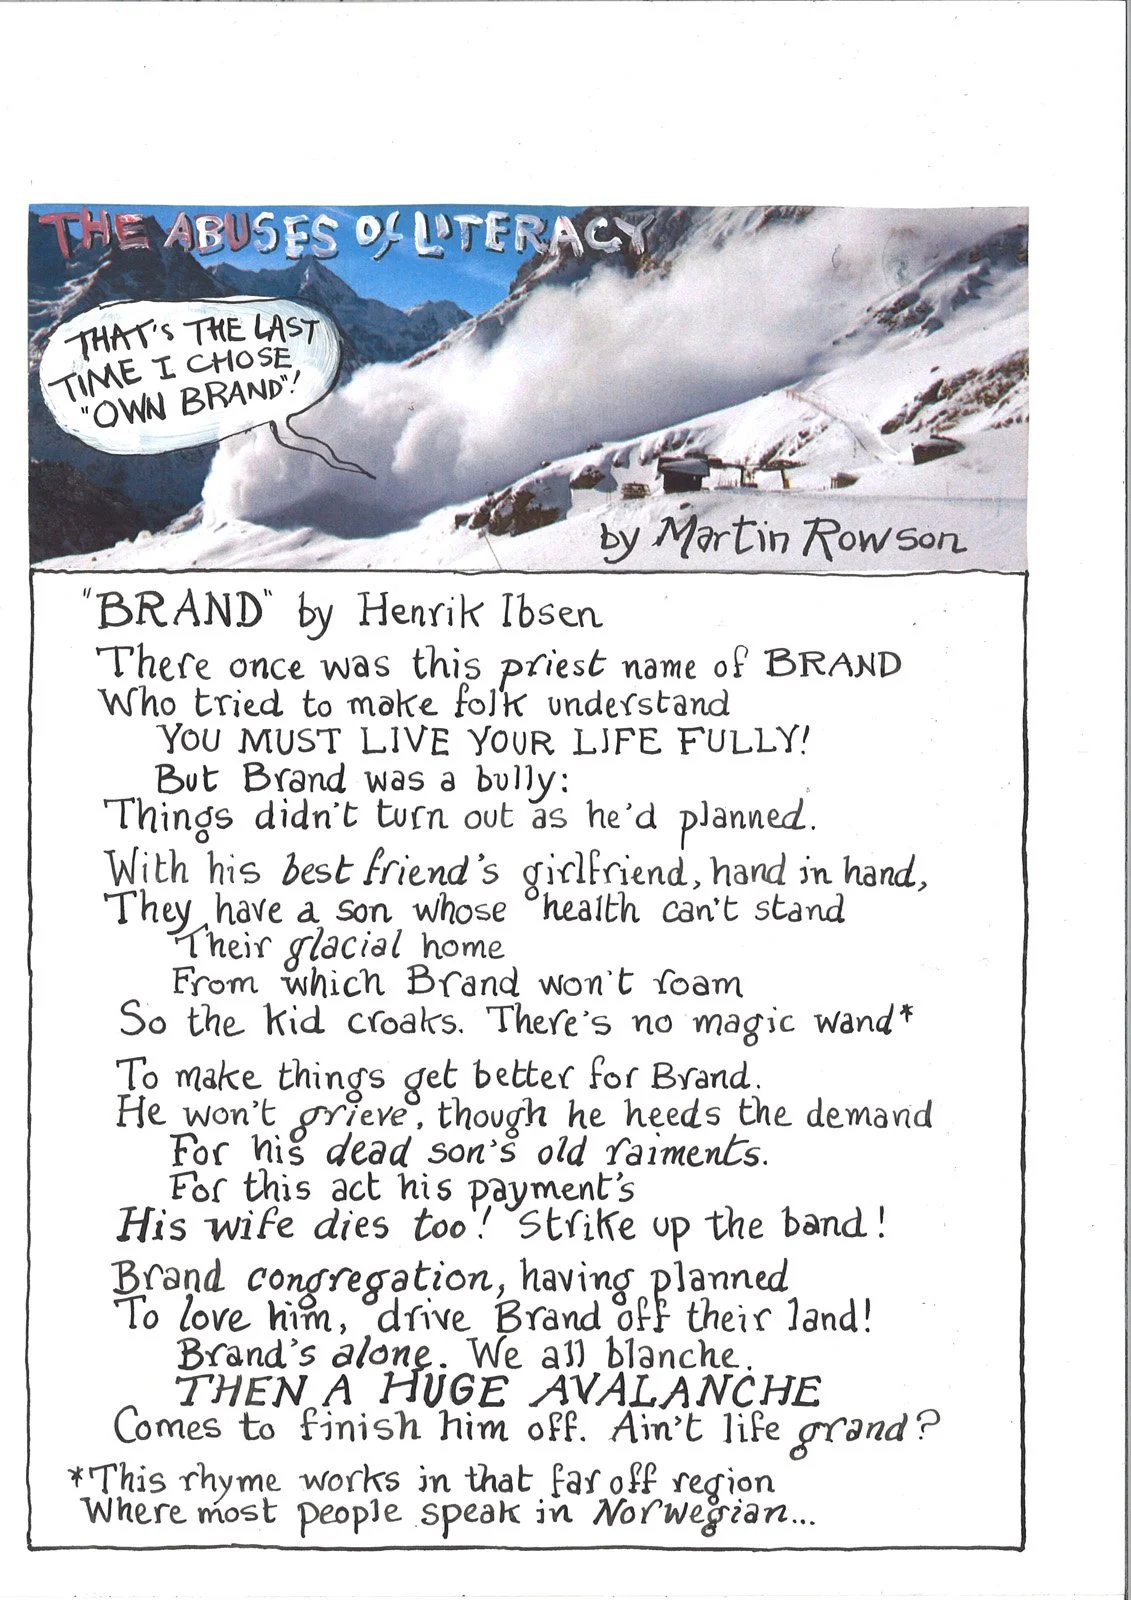 THE ABUSES OF LITERACY
THAT'S THE LAST
TIME I CHOSE
"OWN BRAND"!
by Martin Rowson
"BRAND" by Henrik Ibsen
There once was this priest name of BRAND
Who tried to make folk understand
YOU MUST LIVE YOUR LIFE FULLY!
But Brand was a bully:
Things didn't turn out as he'd planned.
With his best friend's girlfriend, hand in hand,
They have a son whose health can't stand
Their glacial home
From which Brand won't roam
So the kid croaks. There's no magic wand*
To make things get better for Brand.
He won't grieve, though he heeds the demand
For his dead son's old raiments.
For this act his payment's
His wife dies too! Strike up the band!
Brand congregation, having planned
To love him, drive Brand off their land!
Brand's alone. We all blanche.
THEN A HUGE AVALANCHE
Comes to finish him off. Ain't life grand?
*This rhyme works in that far off region
Where most people speak in Norwegian...